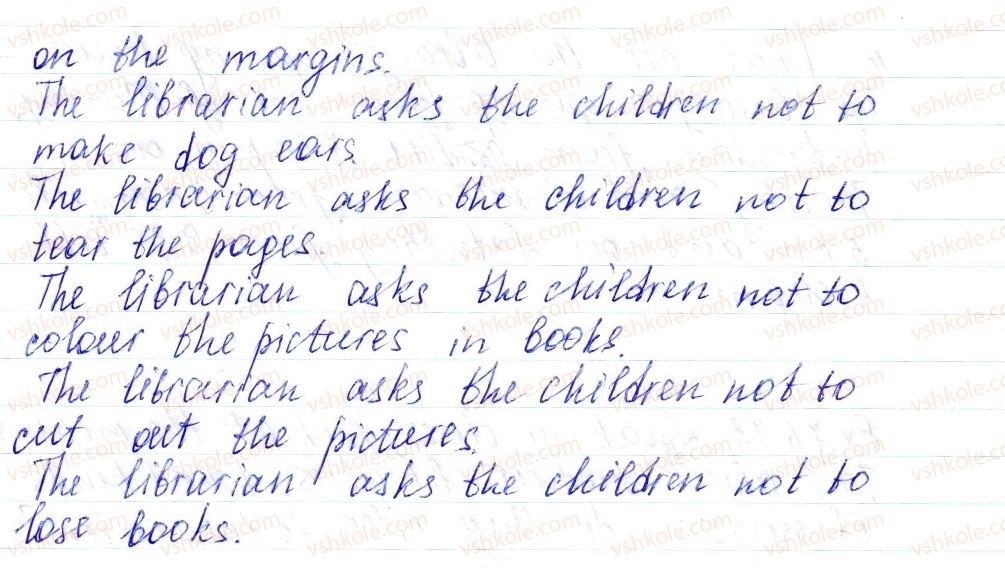 on the margins.
The librarian asks the children not to
make dog ears.
The librarian asks the children not to
tear the pages.
The librarian asks the children not to
colour the pictures in books.
The librarian asks the children not to
cut out the pictures.
The librarian asks the children not to
lose books.
vshkole.com